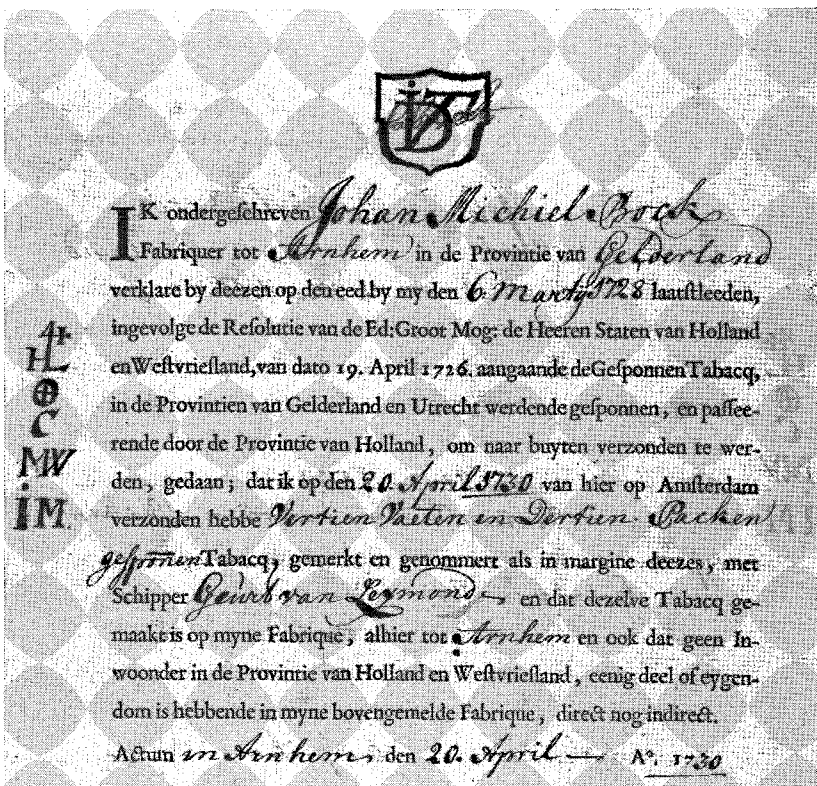 IK ondergeschreven Johan Michiel Bock
Fabriquer tot Arnhem in de Provintie van Gelderland
verklare by deezen op den eed by my den 6 Marty 1728 laatstleeden,
ingevolge de Resolutie van de Ed: Groot Mog: de Heeren Staten van Holland
en Westvriesland, van dato 19. April 1726. aangaande de Gesponnen Tabacq,
in de Provintien van Gelderland en Utrecht werdende gesponnen, en passee-
rende door de Provintie van Holland, om naar buyten verzonden te wer-
den, gedaan; dat ik op den 20 April 1730 van hier op Amsterdam
verzonden hebbe Vertien Vaeten en Dertien Packen
gesponnen Tabacq, gemerkt en genommert als in margine deezes, met
Schipper Geurt van Leymond en dat dezelve Tabacq ge-
maakt is op myne Fabrique, alhier tot Arnhem en ook dat geen In-
woonder in de Provintie van Holland en Westvriesland, eenig deel of eygen-
dom is hebbende in myne bovengemelde Fabrique, direct nog indirect.
Actum in Arnhem, den 20. April Ao. 1730
C
MW
IM